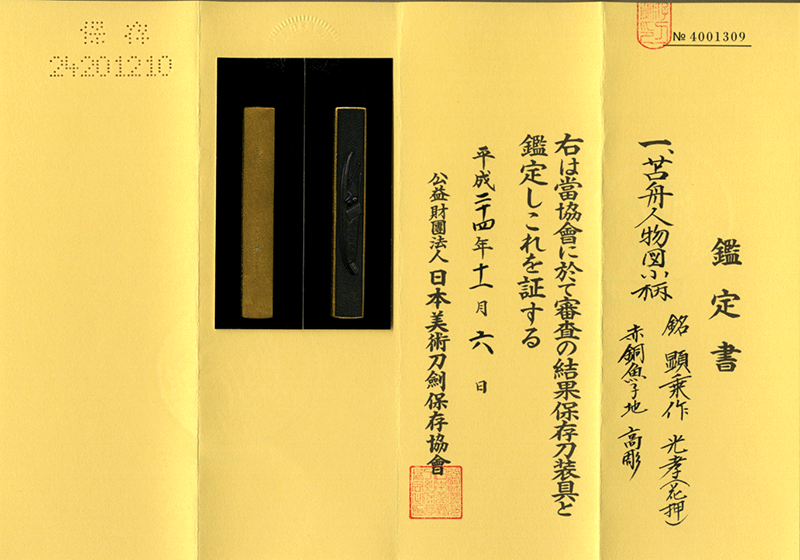 № 4001309
鑑定書
一、苫舟人物図小柄
銘 顕乗作 光孝(花押)
赤銅魚子地 高彫
右は當協會に於て審査の結果保存刀装具と
鑑定しこれを証する
平成二十四年十一月六日
公益財團法人 日本美術刀劍保存協會
保存
24201210